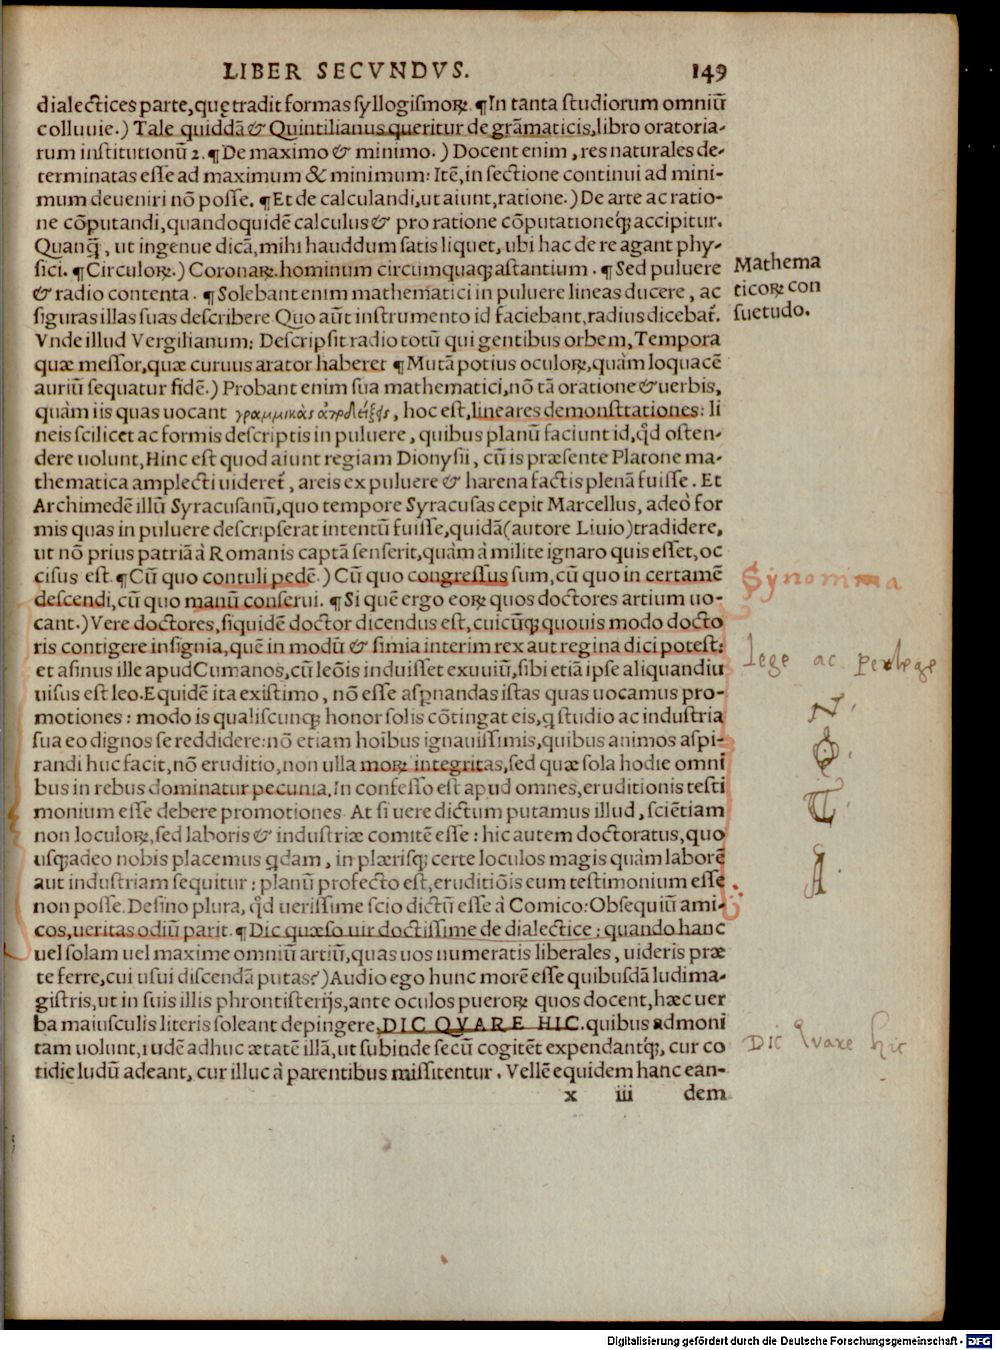 LIBER SECVNDVS. 149
dialectices parte,quę tradit formas syllogismoꝝ. ¶In tanta studiorum omniū
colluuie.) Tale quiddā & Quintilianus queritur de grāmaticis,libro oratoria-
rum institutionū 2. ¶De maximo & minimo. ) Docent enim , res naturales de-
terminatas esse ad maximum & minimum: Itē,in sectione continui ad mini-
mum deueniri nō posse. ¶Et de calculandi,ut aiunt,ratione.) De arte ac ratio-
ne cōputandi,quandoquidē calculus & pro ratione cōputationeq́; accipitur.
Quanq̃ , ut ingenue dicā,mihi hauddum satis liquet, ubi hac de re agant phy-
sici. ¶Circuloꝝ.) Coronaꝝ.hominum circumquaq; astantium . ¶Sed puluere
& radio contenta . ¶Solebant enim mathematici in puluere lineas ducere , ac
figuras illas suas describere Quo aūt instrumento id faciebant,radius dicebat̃.
Vnde illud Vergilianum: Descripsit radio totū qui gentibus orbem, Tempora
quæ messor,quæ curuus arator haberet ¶Mutā potius oculoꝝ,quàm loquacē
auriū sequatur fidē.) Probant enim sua mathematici,nō tā oratione & uerbis,
quàm iis quas uocant γραμμικὰς ἀποδείξεις, hoc est,lineares demonstrationes: li
neis scilicet ac formis descriptis in puluere , quibus planū faciunt id,q̊d osten-
dere uolunt,Hinc est quod aiunt regiam Dionysii , cū is præsente Platone ma-
thematica amplecti uideret̃, areis ex puluere & harena factis plenā fuisse . Et
Archimedē illū Syracusanū,quo tempore Syracusas cepit Marcellus, adeò for
mis quas in puluere descripserat intentū fuisse,quidā(autore Liuio)tradidere,
ut nō prius patriā à Romanis captā senserit,quàm à milite ignaro quis esset,oc
cisus est. ¶Cū quo contuli pedē.) Cū quo congressus sum,cū quo in certamē
descendi,cū quo manū conserui. ¶Si quē ergo eoꝝ quos doctores artium uo-
cant.) Vere doctores,siquidē doctor dicendus est,cuicūq; quouis modo docto
ris contigere insignia,quē in modū & simia interim rex aut regina dici potest:
et asinus ille apud Cumanos,cū leōis induisset exuuiū,sibi etiā ipse aliquandiu
uisus est leo.Equidē ita existimo , nō esse asp̱nandas istas quas uocamus pro-
motiones : modo is qualiscunq; honor solis cōtingat eis,q studio ac industria
sua eo dignos se reddidere:nō etiam hoībus ignauissimis,quibus animos aspi-
randi huc facit,nō eruditio,non ulla moꝝ integritas,sed quæ sola hodie omni
bus in rebus dominatur pecunia.In confesso est apud omnes,eruditionis testi
monium esse debere promotiones At si uere dictum putamus illud , sciētiam
non loculoꝝ,sed laboris & industriæ comitē esse : hic autem doctoratus,quo
usq; adeo nobis placemus qdam , in plærisq; certe loculos magis quàm laborē
aut industriam sequitur : planū profecto est,eruditiōis eum testimonium esse
non posse. Desino plura, q̊d uerissime scio dictū esse à Comico: Obsequiū ami-
cos,ueritas odiū parit. ¶Dic quæso uir doctissime de dialectice ; quando hanc
uel solam uel maxime omniū artiū,quas uos numeratis liberales , uideris præ
te ferre,cui usui discendā putas?) Audio ego hunc morē esse quibusdā ludima-
gistris,ut in suis illis phrontisterijs,ante oculos pueroꝝ quos docent,hæc uer
ba maiusculis literis soleant depingere,DIC QVARE HIC.quibus admoni
tam uolunt,iudē adhuc ætatē illā,ut subinde secū cogitēt expendantq́;, cur co
tidie ludū adeant, cur illuc à parentibus missitentur . Vellē equidem hanc ean-
x iii dem
Mathema
ticoꝝ con
suetudo.
Synonima
lege ac perlege
N
T
A
Dic Quare hic
Digitalisierung gefördert durch die Deutsche Forschungsgemeinschaft - DFG